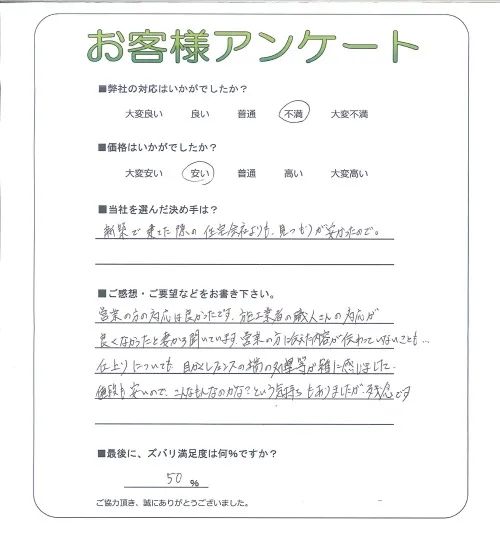 お客様アンケート
■弊社の対応はいかがでしたか？
大変良い 良い 普通 不満 大変不満
■価格はいかがでしたか？
大変安い 安い 普通 高い 大変高い
■当社を選んだ決め手は？
新築で建てた際の住宅会社よりも、見つもりが安かったので。
■ご感想・ご要望などをお書き下さい。
営業の方の対応は良かったです。施工業者の職人さんの対応が
良くなかったと妻から聞いています。営業の方に伝えた内容が伝わっていないことも…
仕上りについても 目かくしフェンスの端の処理等が雑に感じました。
値段も安いので、こんなもんなのかな？という気持ちもありましたが、残念です
■最後に、ズバリ満足度は何%ですか？
50 %
ご協力頂き、誠にありがとうございました。